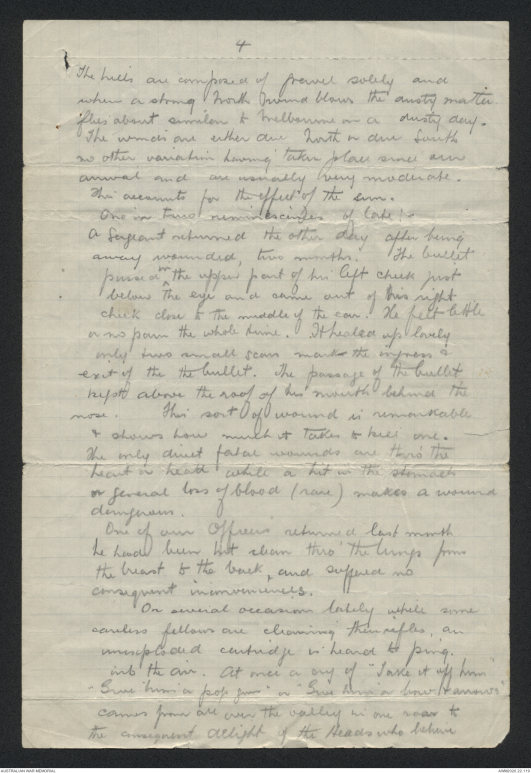 4
The hills are composed of gravel solely and
when a strong North wind blows the dusty matter
flies about similar to Melbourne on a dusty day.
The winds are either due North or due South
no other variation having taken place since our
arrival and are usually very moderate.
This accounts for the effect of the sun.
One or two reminiscinces of late! -
A Sergeant returned the other day after being
away wounded, two months. The bullet
passed in the upper part of his left cheek just
below the eye and came out of his right
cheek close to the middle of the ear. He felt little
or no pain the whole time. It healed up lovely
only two small scars mark the ingress &
exit of the the bullet. The passage of the bullet
kept above the roof of his mouth behind the
nose. This sort of wound is remarkable
& shows how much it takes to kill one.
The only direct fatal wounds are thro' the
heart or head while a hit in the stomach
or general loss of blood (rare) makes a wound
dangerous.
One of our Officers returned last month
he had been hit clean thro' the lungs from
the breast to the back, and suffered no
consequent inconveniences.
On several occasion lately while some
careless fellows are cleaning their rifles, an
unexploded cartridge is heard to ping
into the air. At once a cry of "Take it off him"
"Give him a pop gun" or "Give him a bow & arrows"
comes from all over the valley in one roar to
the consequent delight of the Heads who believe
AUSTRALIAN WAR MEMORIAL